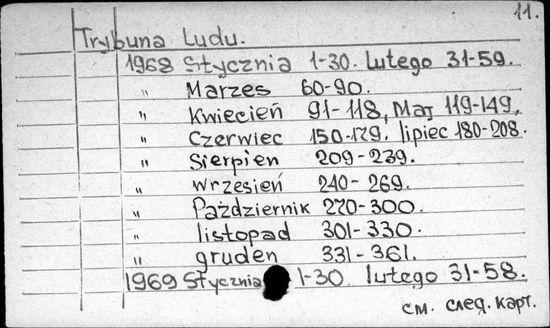 11.
Trybuna Ludu.
1968 Stycznia 1-30. Lutego 31-59.
" Marzes 60-90.
" Kwiecień 91-118, Maj 119-149,
" Czerwiec 150-179. lipiec 180-208.
" Sierpien 209-239.
" Wrzesień 240-269.
" Październik 270-300.
" listopad 301-330.
" gruden 331-361.
1969 Stycznia 1-30 lutego 31-58.
см. след. карт.